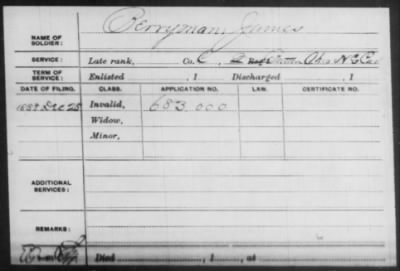 NAME OF SOLDIER: Perryman, James
SERVICE: Late rank, Co. C, Ohio N. G. Cav
TERM OF SERVICE: Enlisted , 1 Discharged , 1
DATE OF FILING. CLASS. APPLICATION NO. LAW. CERTIFICATE NO.
1889 Dec 28 Invalid, 683.000
Widow,
Minor,
ADDITIONAL SERVICES:
REMARKS:
Died , 1 , at